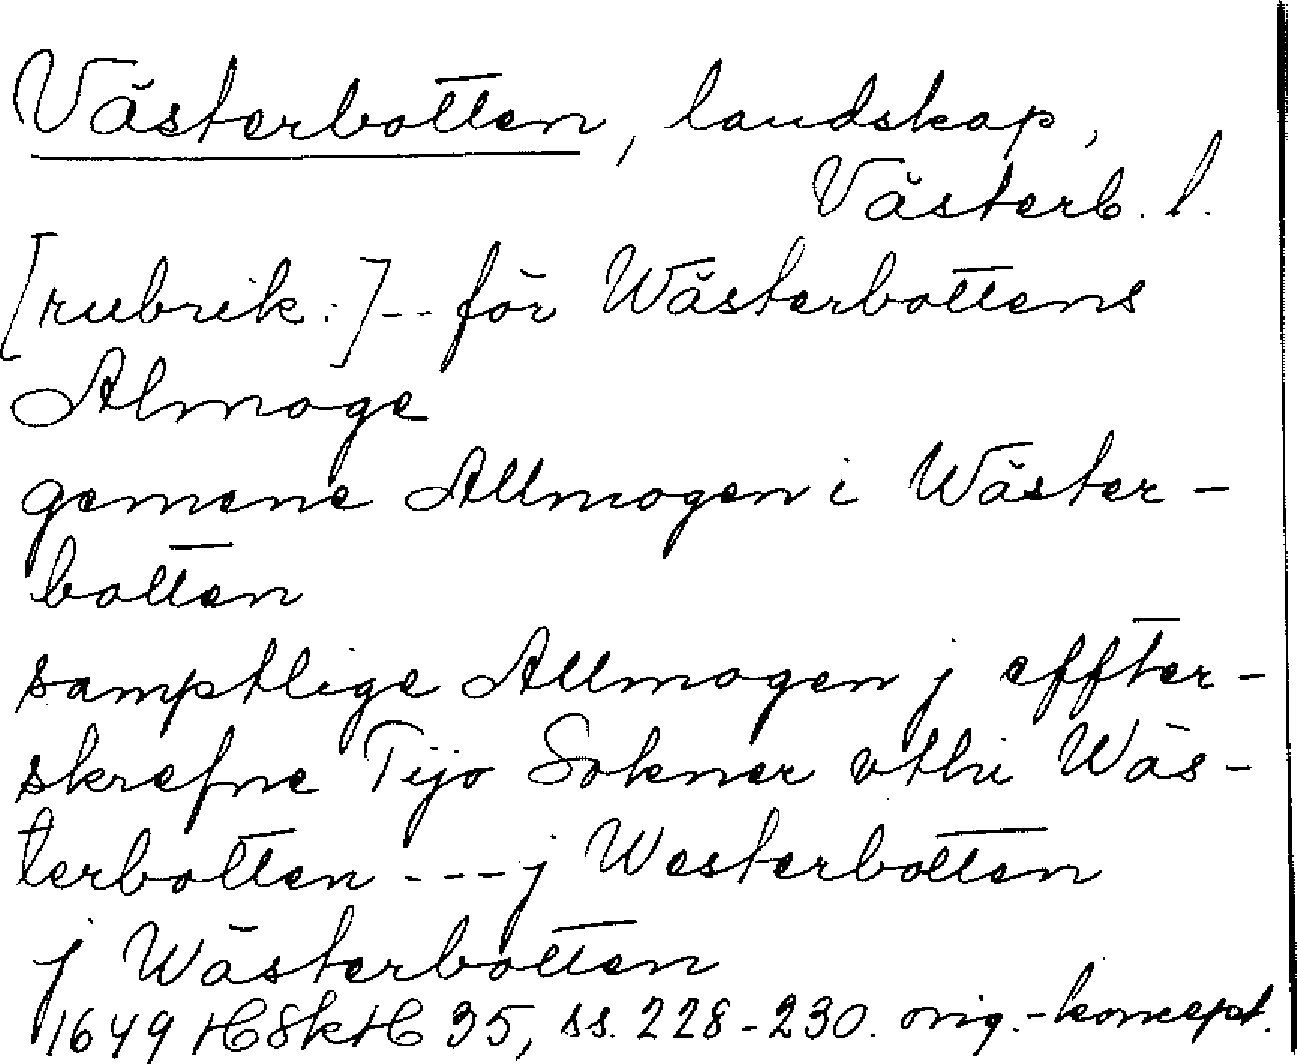 Västerbotten, landskap,
Västerb. l.
[rubrik:] -- för Wästerbottens
Almoge
gemene Allmogen i Wäster-
botten
samptlige Allmogen j effter-
skrefne Tijo Soknar vthi Wäs-
terbotten --- j Westerbotten
j Wästerbotten
1649 HSkH 35, ss. 228-230. orig.-koncept.